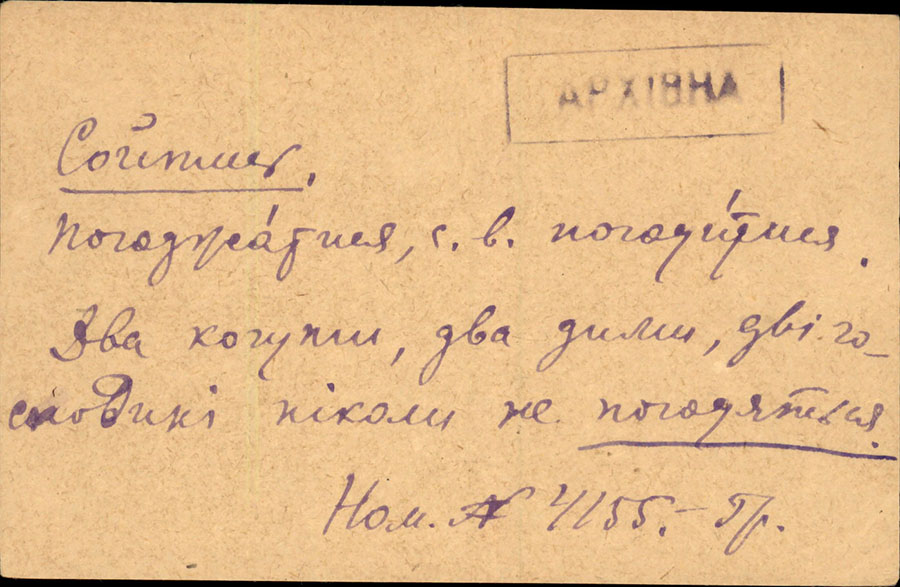 АРХІВНА
Сойтись,
погоджа́тися, с. в. погоди́тися.
Два когути, два дими, дві го-
сподині ніколи не погодяться.
Ном. № 4155. – Гр.